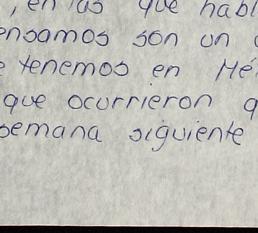 , en las que habl
ensamos son un
tenemos en Mé
que ocurrieron q
semana siguiente